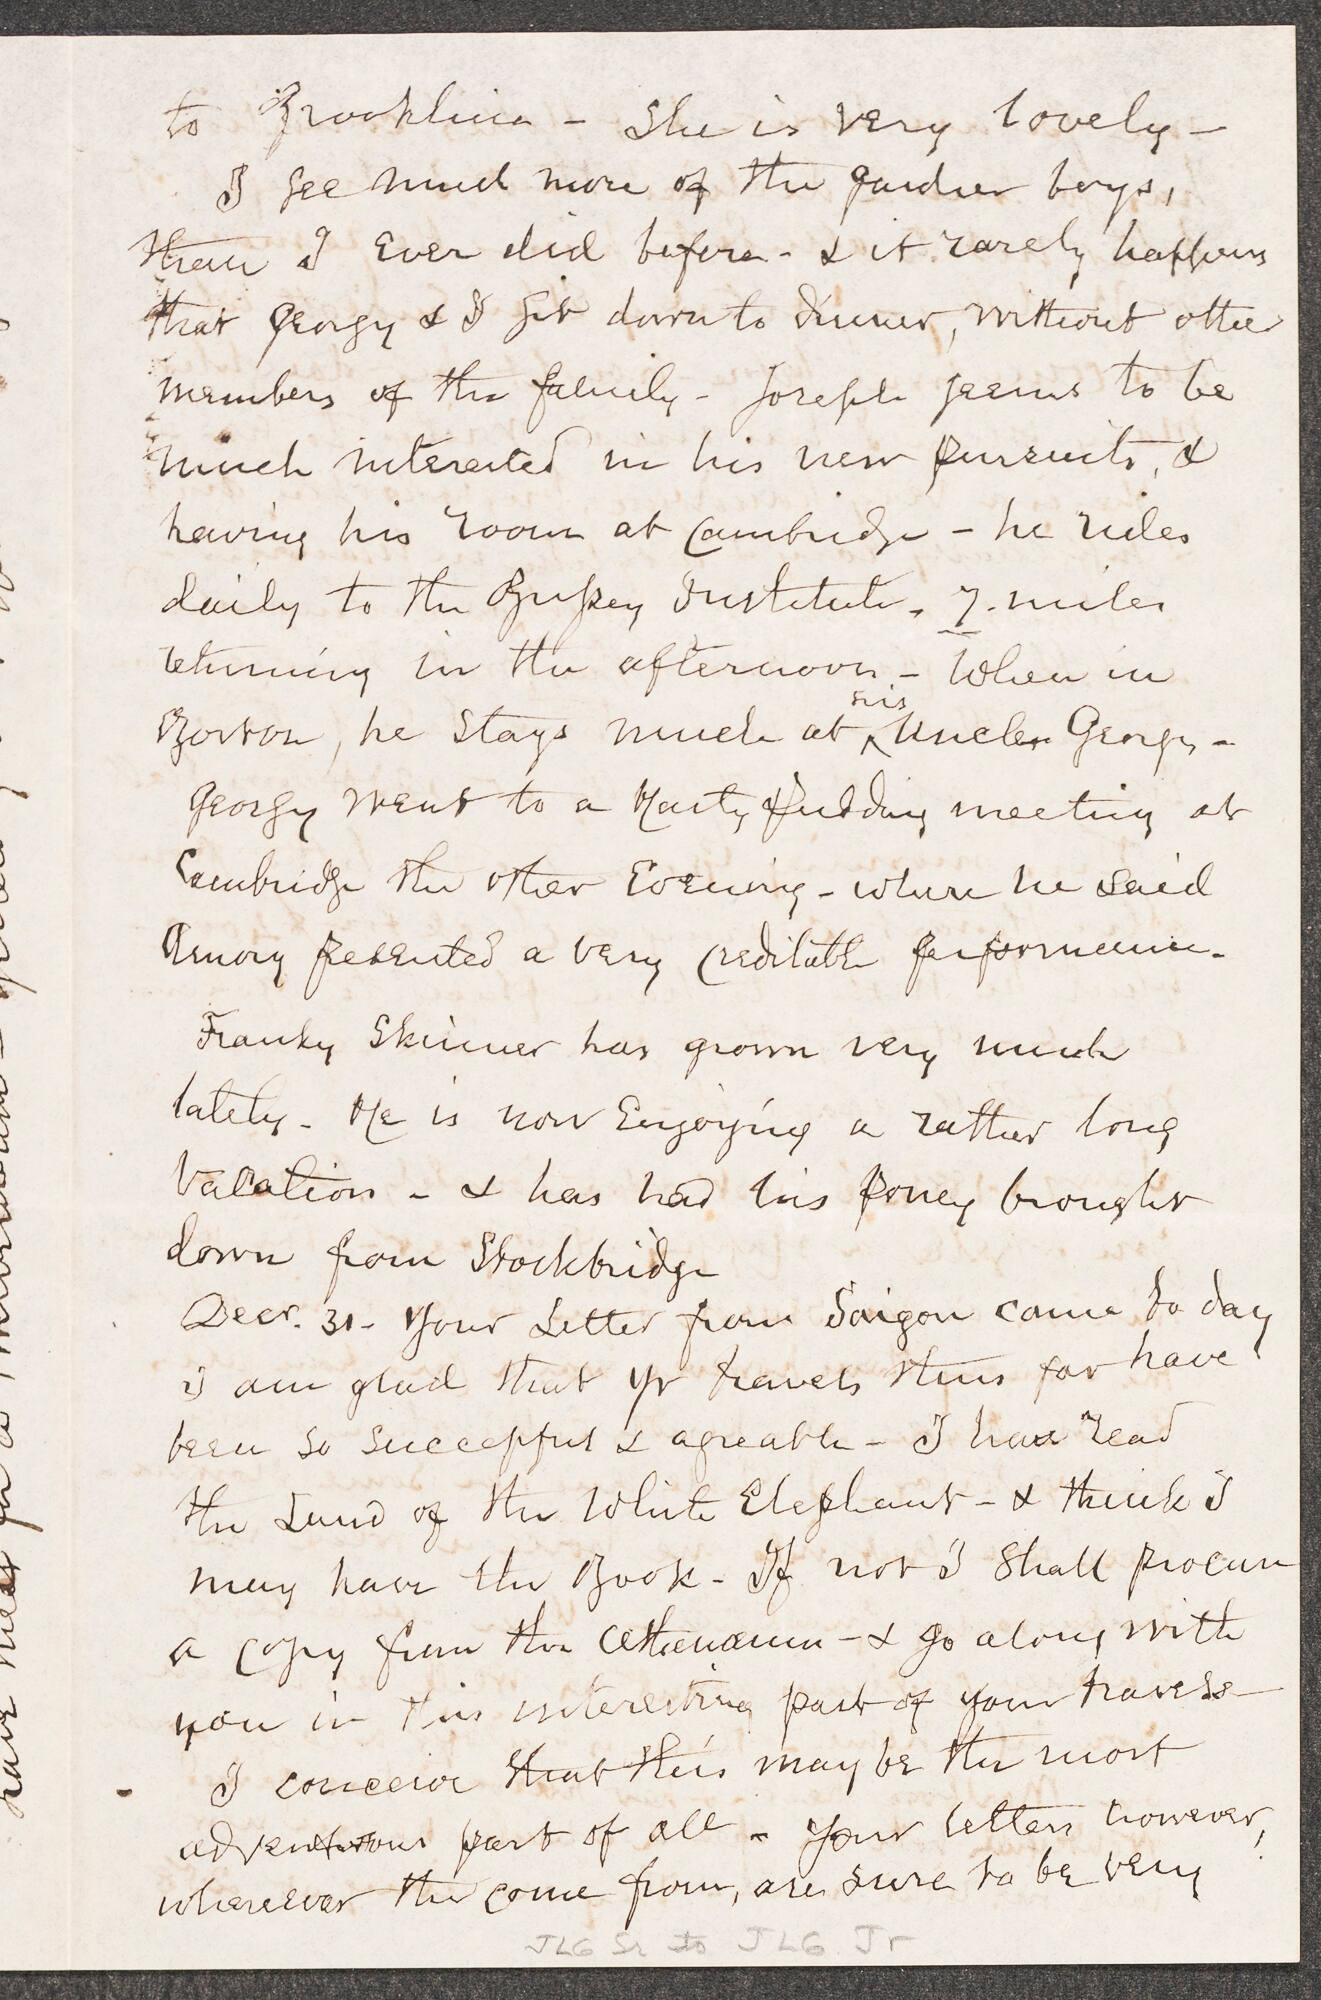 to Brookline - She is very lovely -
I see much more of the Gardner boys,
than I ever did before - & it rarely happens
that Georgy & I sit down to dinner, without other
members of the family - Joseph seems to be
much interested in his new pursuits, &
having his room at Cambridge - he rides
daily to the Bussey Institute - 7. miles
returning in the afternoon - When in
Boston, he stays much at his Uncle Georges -
Georgy went to a Hasty Pudding meeting at
Cambridge the other Evening - where he said
Amory presented a very creditable performance -
Franky Skinner has grown very much
lately - He is now Enjoying a rather long
Vacation - & has had his poney brought
down from Stockbridge
Decr. 31 - Your Letter from Saigon came to day
I am glad that yr travels thus far have
been so successful & agreable - I have read
the Land of the White Elephant - & think I
may have the Book - If not I shall procure
a copy from the Athenæum - & go along with
you in this interesting part of your travels -
I conceive that this may be the most
adventurous part of all - Your letters however,
wherever the come from, are sure to be very
JLG Sr to JLG Jr